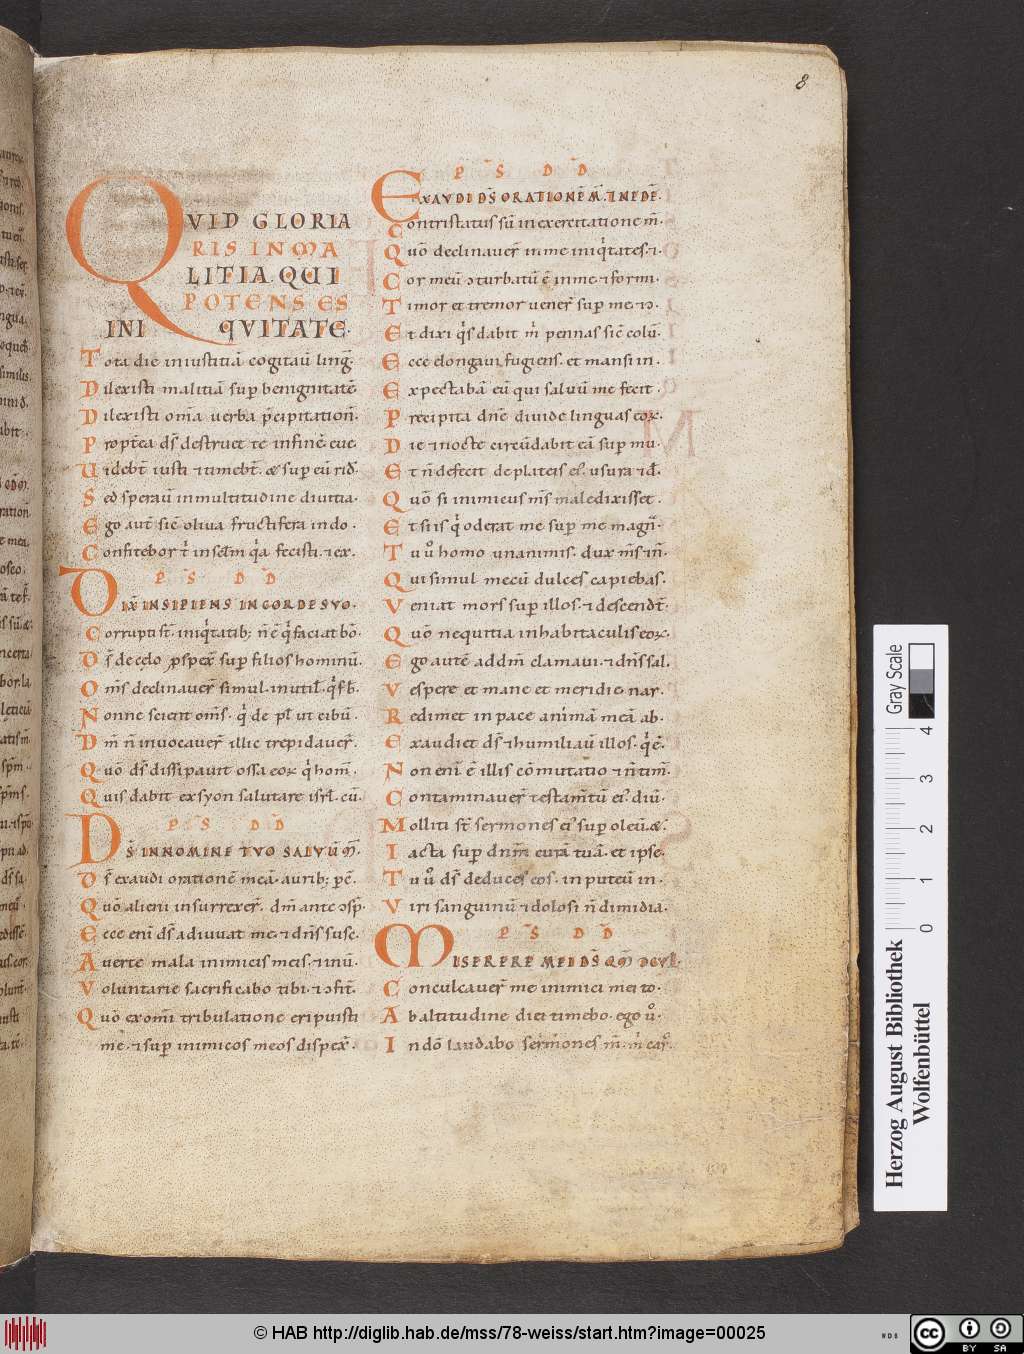 8
QVID GLORIA
RIS IN MA
LITIA. QUI
POTENS ES
INI QVITATE.
Tota die iniustitiā cogitaū linḡ.
Dilexisti malitiā sup benignitatē
Dilexisti om̄a uerba p̄cipitation̄.
Propt̄ea dr̄ destruet te infinē eue
Uidebt̄ iusti ⁊timebt̄. & sup eū rid̄.
Sed speraū inmultitudine diuitia.
Ego aut̄ sic̄ oliua fructifera indo.
Confitebor t̄ insc̄lm q̇a fecisti. ⁊ex.
P̄S D̄D
DIX̄ INSIPIENS INCORDE SVO.
Corrupti st̄. iniq̇tatib; n̄ ē q̇ faciat bō.
Ds̄ decęlo ꝓspex̄ sup filios hominū.
Om̄s declinauer̄ simul. inutil̄. q̇ f. b̄.
Nonne scient om̄s. q̇ de pl̄ ut cibū.
Dm̄ n̄ inuocauer̄ illic trepidauer̄.
Quō ds̄ dissipauit ossa eoꝝ q̇ hom̄.
Quis dabit exsyon salutare isrl̄. cū.
P̄S D̄D
DS̄ INNOMINE TVO SALVŪ M̄.
Ds̄ exaudi orationē meā. aurib; p̄c̄.
Quō alieni insurrexer̄. dm̄ ante ↄsp̄.
Ecce enī ds̄ adiuuat me. ⁊ dn̄s susc.
Auerte mala inimicis meis. ⁊inū.
Voluntarie sacrificabo tibi. ⁊ↄfit̄.
Quō exom̄i tribulatione eripuisti
me. ⁊sup inimicos meos dispex̄.
P̄S D̄D
EXAVDI DS̄ ORATIONĒ M̄. ⁊NEDĒ.
Contristatus sū inexercitatione m̄.
Quō declinauer̄ inme iniq̇tates. ⁊.
Cor meū ↄturbatū ē inme. ⁊formi.
Timor et tremor uener̄ sup me. ⁊ↄ.
Et dixi q̇s dabit m̄ pennas sic̄ colū.
Ecce elongaui fugiens. et mansi in.
Expectabā eū qui saluū me fecit.
Precipita dnē diuide linguas eoꝝ.
Die ⁊nocte circūdabit eā sup mu.
Et n̄ defecit deplateis ei. usura ⁊d̄.
Quō si inimicus m̄s maledixisset.
Et si is q̇ oderat me sup me magn̄.
Tu u̇ homo unanimis. dux m̄s ⁊n̄.
Qui simul mecū dulces capiebas.
Veniat mors sup illos. ⁊descendt̄.
Quō nequitia inhabitaculis eoꝝ.
Ego autē addm̄ clamaui. ⁊dn̄s sal.
Vespere et mane et meridie nar.
Redimet in pace animā meā ab.
Exaudiet ds̄ ⁊humiliaū illos. q̇ ē.
Non enī ē illis cōmutatio ⁊n̄ tim̄.
Contaminauer̄ testam̄tū ei. diū.
Molliti st̄ sermones ei sup oleū. &.
Iacta sup dnm̄ curā tuā. et ipse.
Tu u̇ ds̄ deduces eos. in puteū in.
Viri sanguinū ⁊dolosi n̄ dimidia.
P̄S D̄D
MISERERE MEI DS̄ QM̄ ↄCVL.
Conculcauer̄ me inimici mei to.
Abaltitudine diei timebo. ego u̇.
Indō laudabo sermones m̄. m̄ ear̄.
Gray Scale
0 1 2 3 4
Herzog August Bibliothek
Wolfenbüttel
© HAB http://diglib.hab.de/mss/78-weiss/start.htm?image=00025
cc BY SA